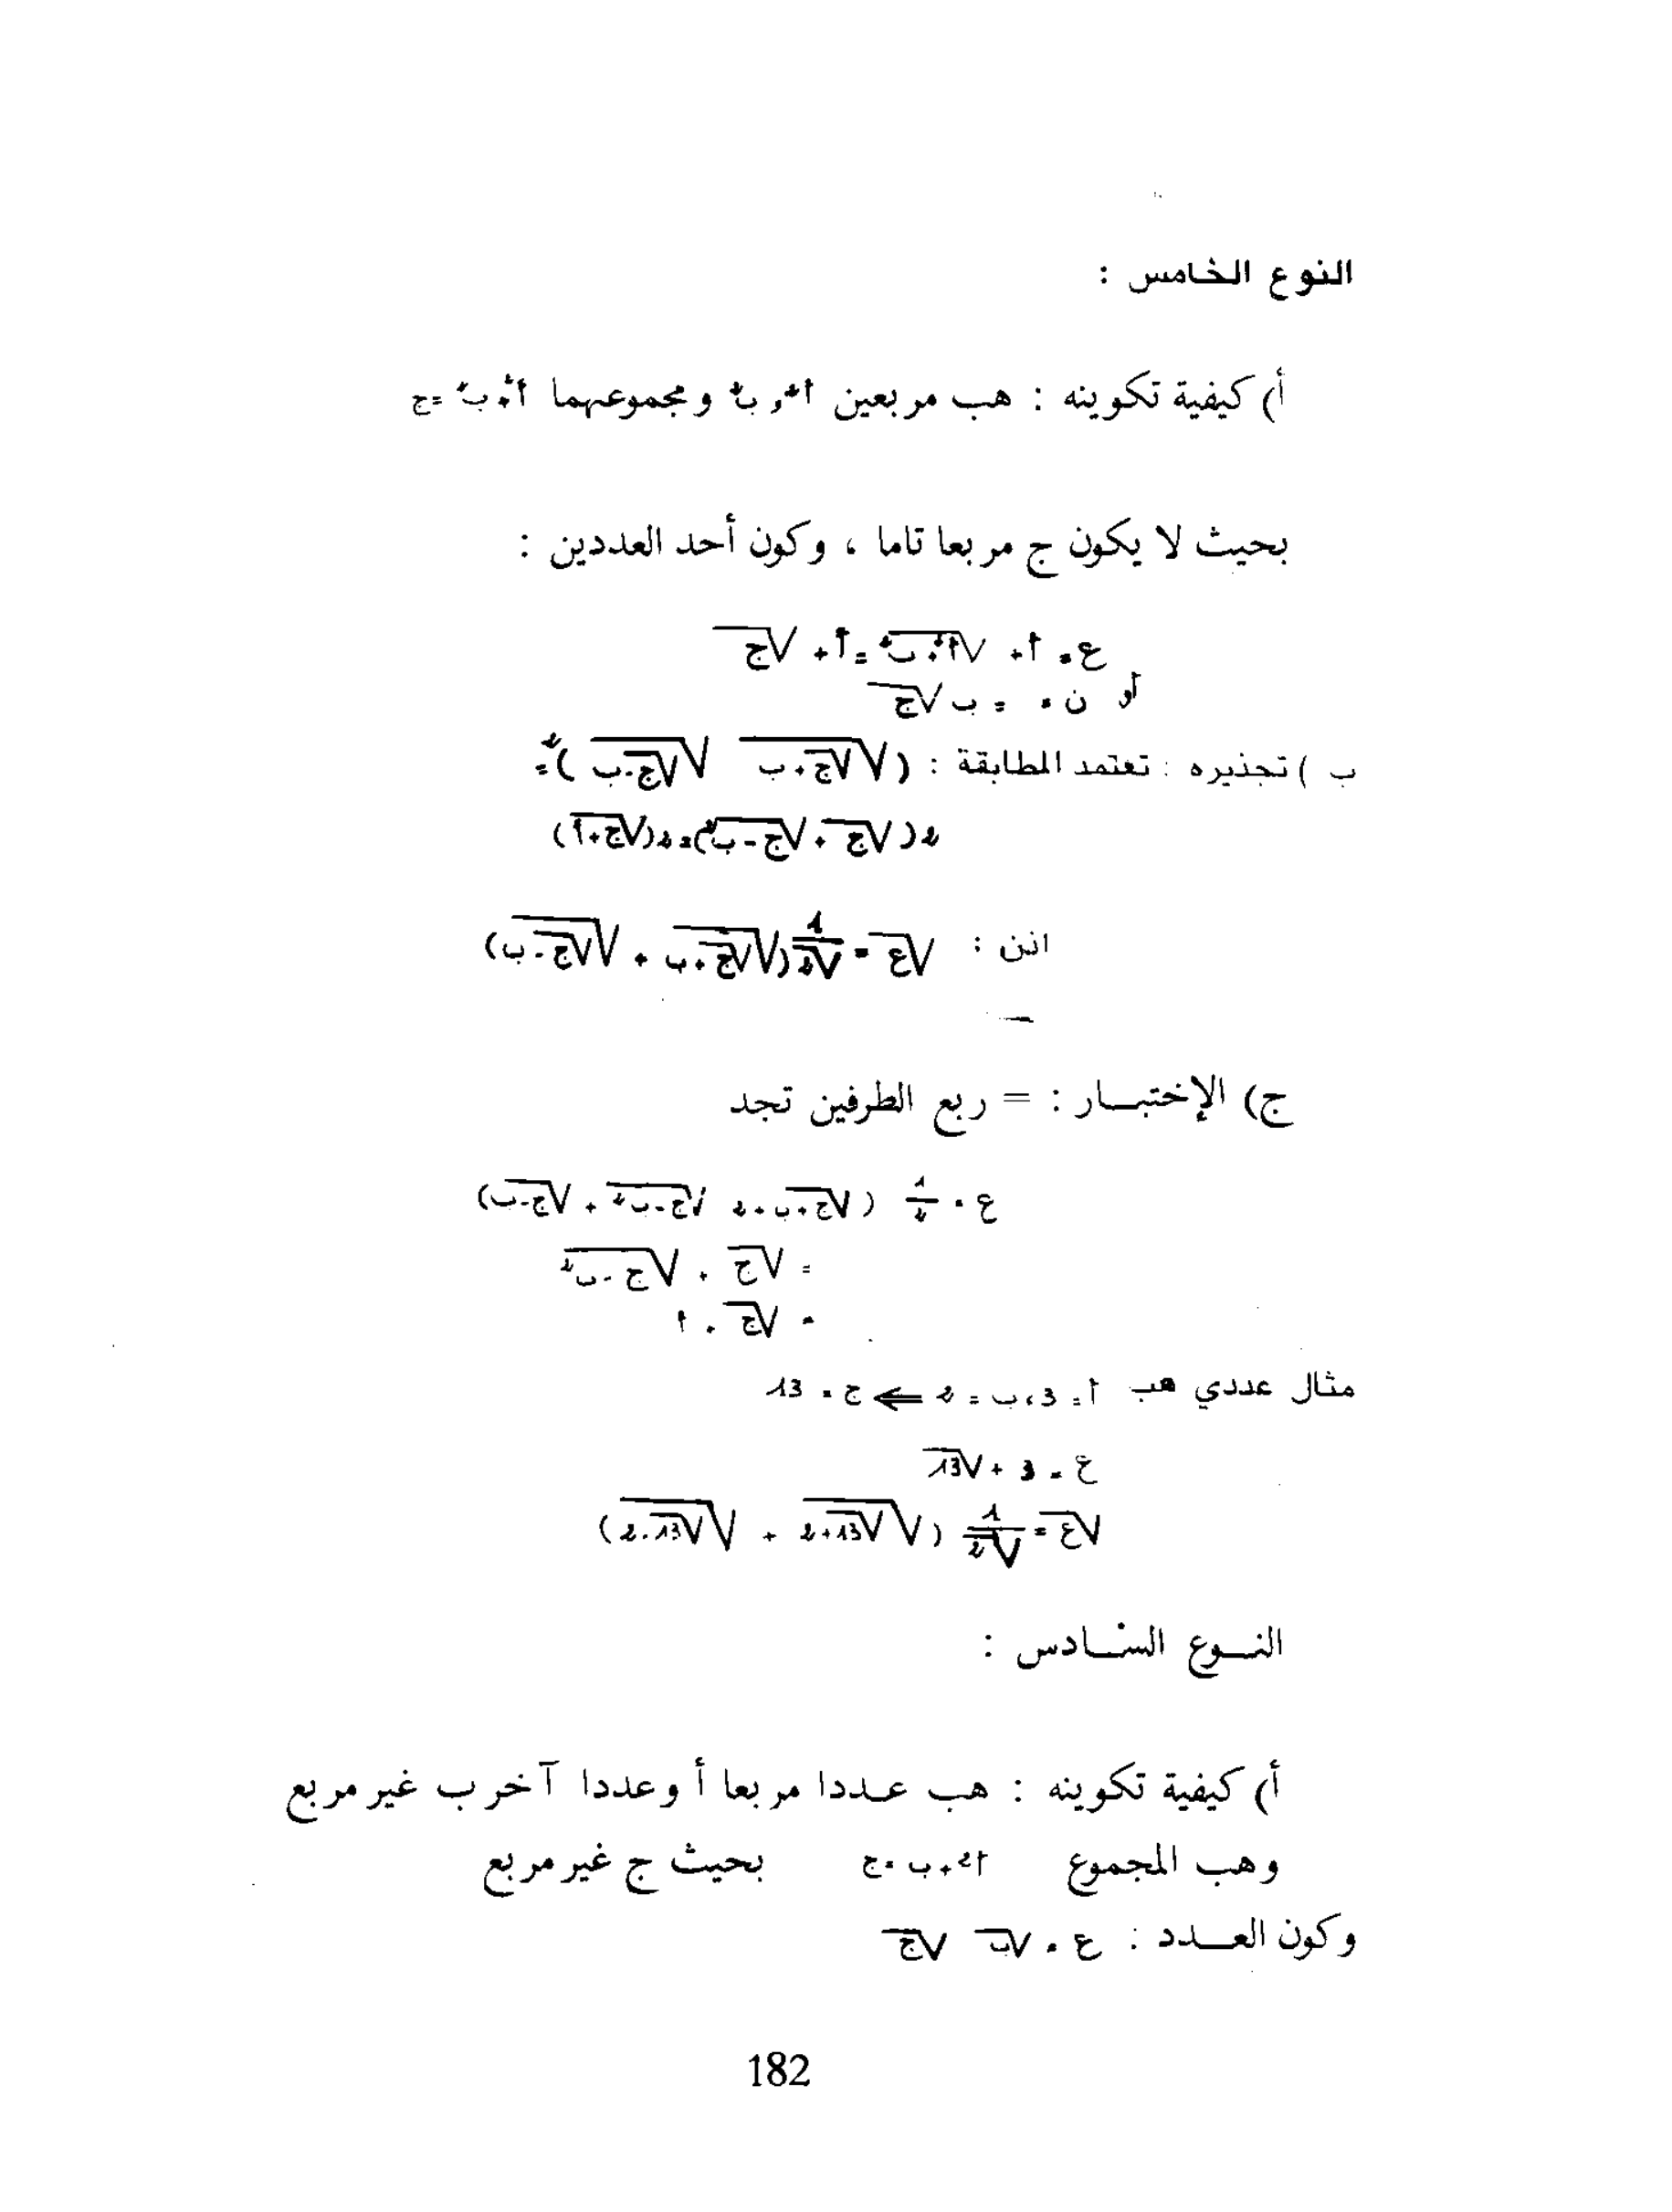 النوع الخامس :
أ) كيفية تكوينه : هب مربعين أ² و ب² ومجموعهما أ² + ب² = ج
بحيث لا يكون ج مربعا تاما ، وكون أحد العددين :
ع = أ + √(أ² + ب²) = أ + √ج
أو ن = = ب √ج
ب ) تجذيره : تعتمد المطابقة : (√(√ج + ب) √(√ج - ب))² =
2(√ج + √(ج - ب²)) = 2(√ج + أ)
اذن : √ع = 1/√2 (√(√ج + ب) + √(√ج - ب))
ج) الإختبــار : = ربع الطرفين تجد
ع = 1/2 (√ج + ب + 2 √(ج - ب²) + √ج - ب)
= √ج + √(ج - ب²)
= √ج + أ
مثال عددي هب أ = 3 ، ب = 2 ⇐ ج = 13
ع = 3 + √13
√ع = 1/√2 (√(√13 + 2) + √(√13 - 2))
النــوع السـادس :
أ) كيفية تكوينه : هب عـددا مربعا أ وعددا آخر ب غير مربع
وهب المجموع أ² + ب = ج بحيث ج غير مربع
وكون العــدد : ع = √ب √ج
182